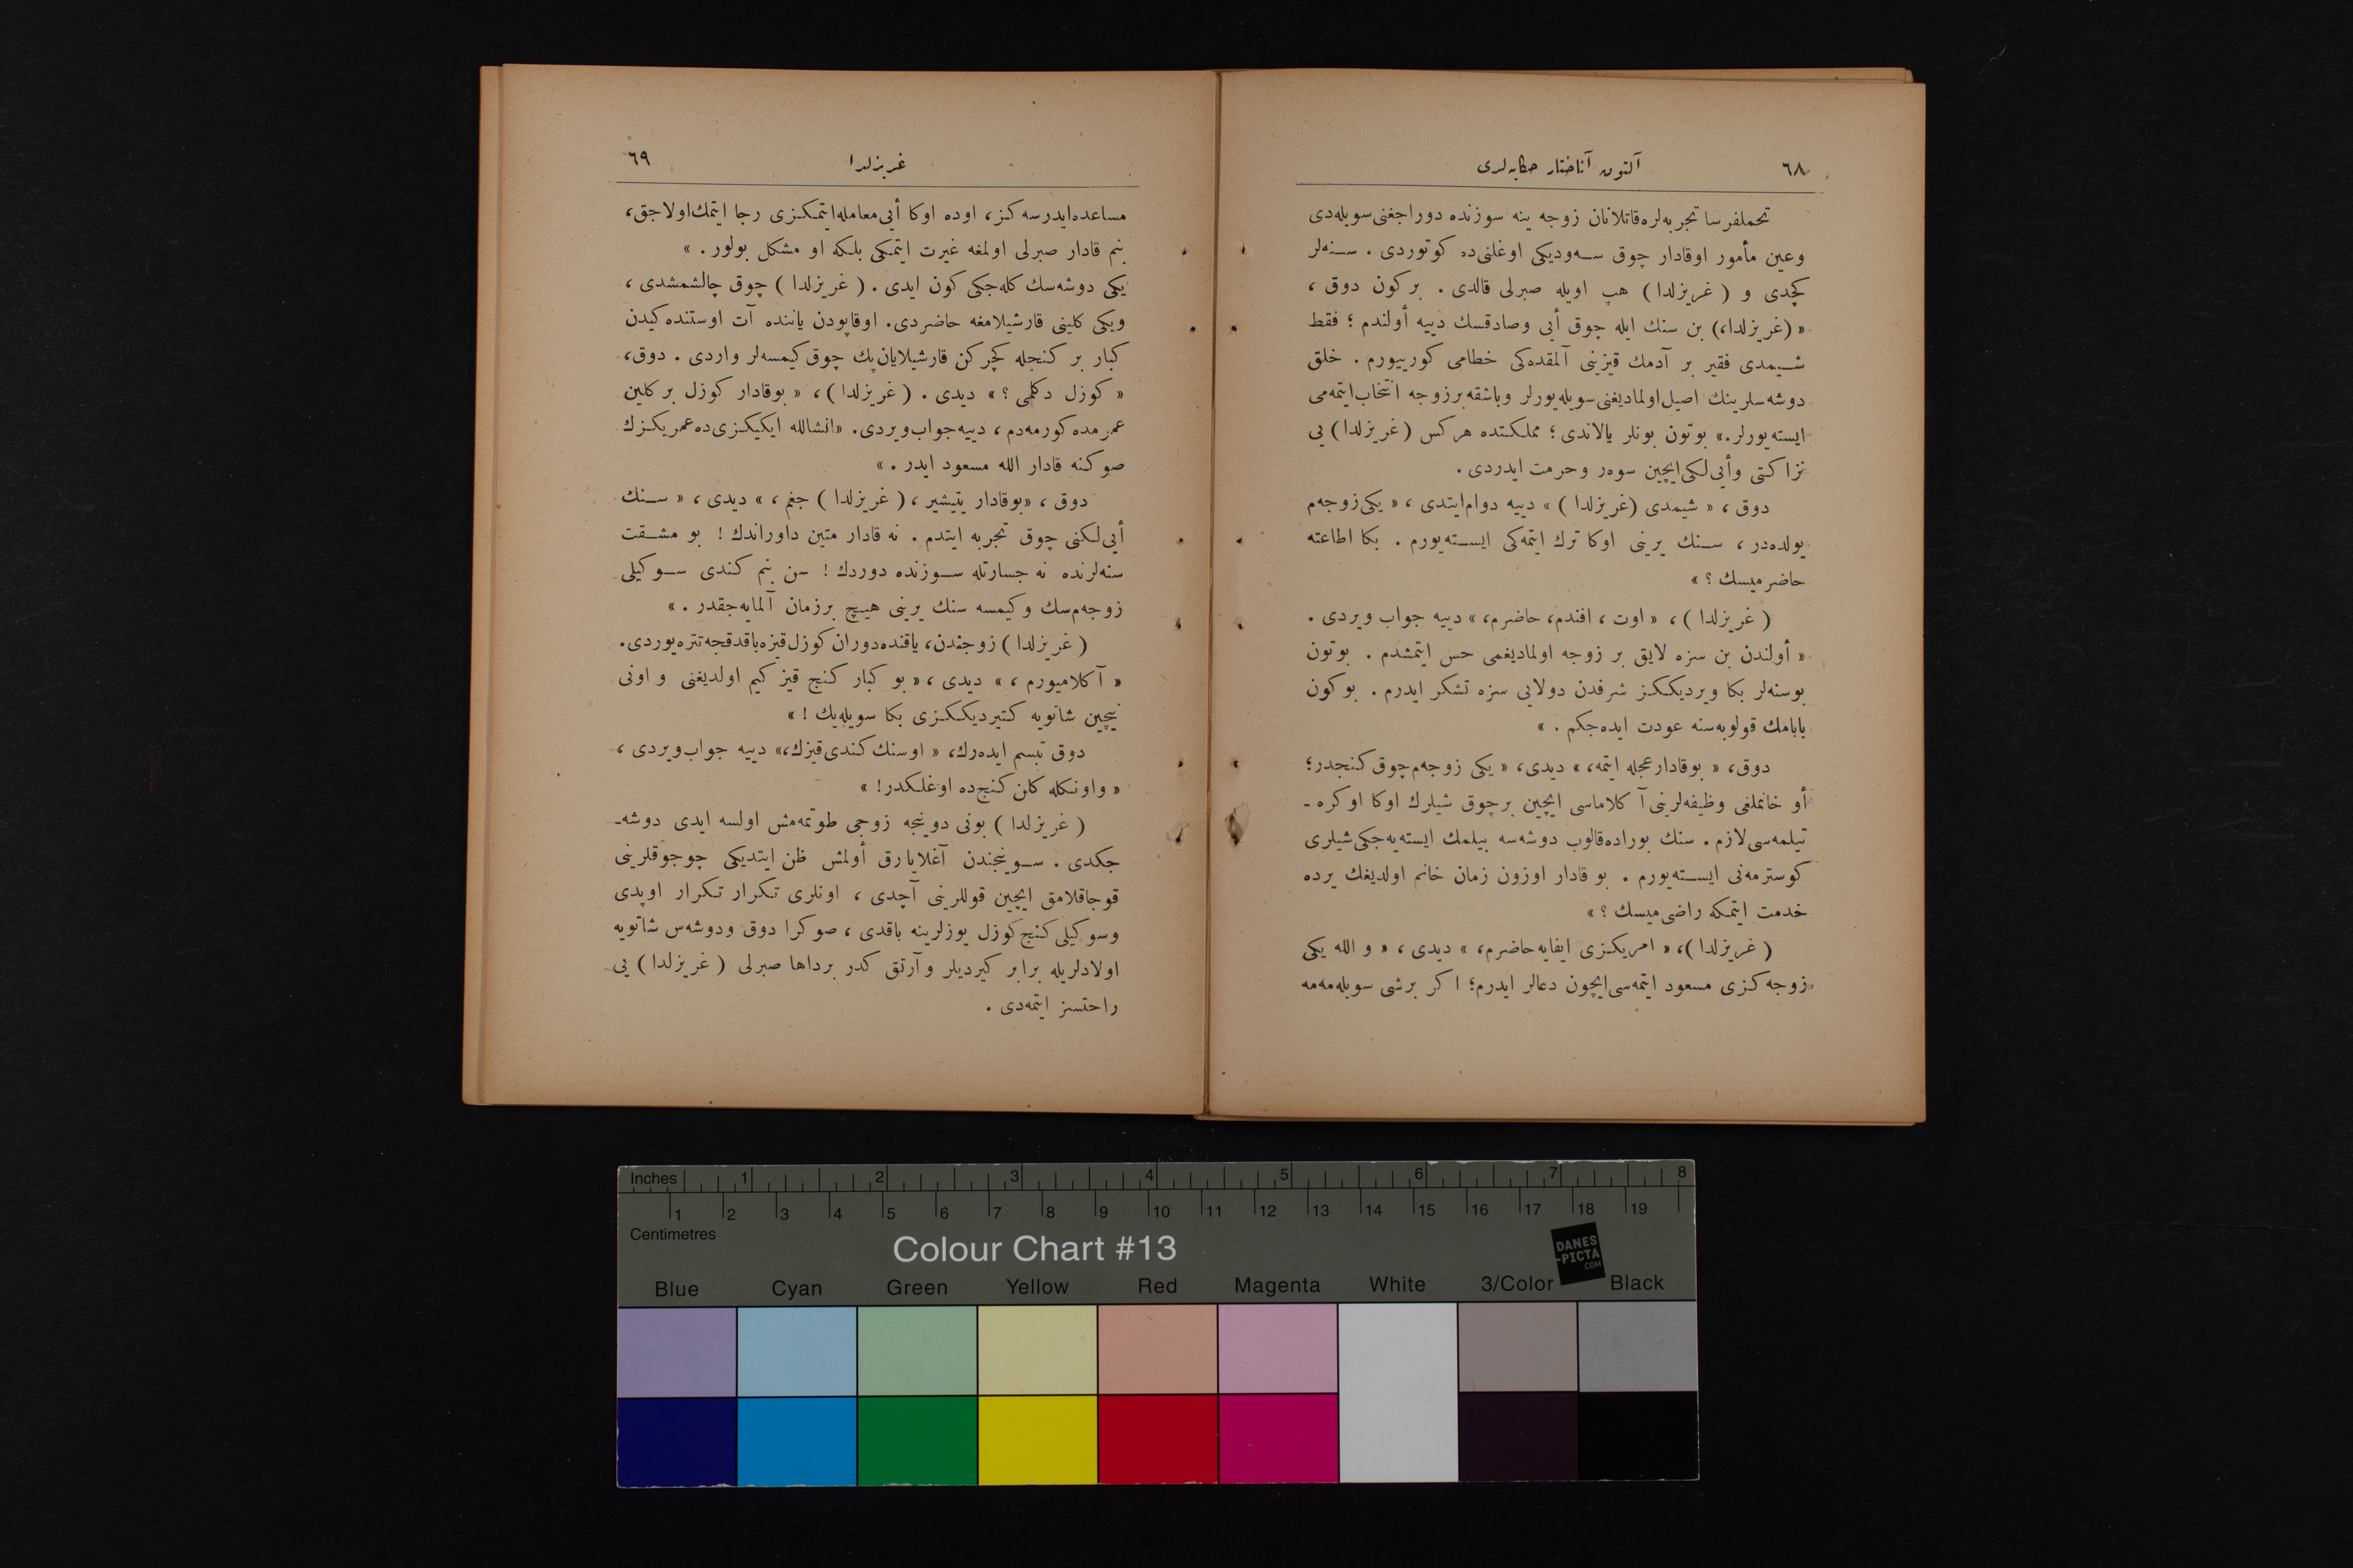 ٦٨
آلتون آناختار حكايه‌لری
تحملفرسا تجربه‌لره قاتلانان زوجه ینه سوزنده دوراجغنی سویله‌دی
وعین مأمور اوقادار چوق سـه‌ودیكی اوغلنی‌ده كوتوردی . سـنه‌لر
كچدی و ( غریزلدا ) هپ اویله صبرلی قالدی . بركون دوق ،
« (غریزلدا،) بن سنك ایله چوق أیی وصادقسك دییه أولندم ؛ فقط
شـیمدی فقیر بر آدمك قیزینی آلمقده‌كی خطامی كورییورم . خلق
دوشه‌سلرینك اصیل‌اولمادیغنی‌سویله‌یورلر وباشقه‌برزوجه انتخاب‌ایتمه‌می
ایسته‌یورلر.» بوتون بونلر یالاندی ؛ مملكتده هركس (غریزلدا) یی
نزاكتی وأیی‌لكی‌ایچین سوه‌ر وحرمت ایدردی .
دوق ، « شیمدی (غریزلدا ) » دییه دوام‌ایتدی ، « یكی‌زوجه‌م
یولده‌در ، سـنك یرینی اوكا ترك ایتمه‌كی ایسـته‌یورم . بكا اطاعته
حاضرمیسك ؟ »
( غریزلدا ) ، « اوت ، افندم، حاضرم، » دییه جواب ویردی .
« أولندن بن سزه لایق بر زوجه اولمادیغمی حس ایتمشدم . بوتون
بوسنه‌لر بكا ویردیكـكـز شرفدن دولایی سزه تشكر ایدرم . بوكون
بابامك قولوبه‌سنه عودت ایده‌جكم . »
دوق، « بوقادارعجله ایتمه، » دیدی، « یكی زوجه‌م‌چوق كنجدر؛
أو خانملغی وظیفه‌لرینی آكلاماسی ایچین برچوق شیلرك اوكا اوكره ـ
تیلمه‌سی‌لازم . سنك بوراده‌قالوب دوشه‌سه بیلمك ایسته‌یه‌جكی‌شیلری
كوسترمه‌نی ایسـته‌یورم . بوقادار اوزون زمان خانم اولدیغك یرده
خدمت ایتمكه راضی‌میسك ؟ »
( غریزلدا )، « امریكـزی ایفایه‌حاضرم، » دیدی ، « و الله یكی
زوجه‌كـزی مسعود ایتمه‌سی‌ایچون دعالر ایدرم؛ اكر برشی سویله‌مه‌مه
غریزلدا
٦٩
مساعده‌ایدرسه‌كـز، اوده اوكا أیی‌معامله‌ایتمكـزی رجا ایتمك‌اولاجق،
بنم قادار صبرلی اولمغه غیرت ایتمكی بلكه او مشكل بولور . »
یكی دوشه‌سك كله‌جكی كون ایدی . ( غریزلدا ) چوق چالشمشدی ،
ویكی كلینی قارشیلامغه حاضردی. اوقاپودن یاننده آت اوستنده‌كیدن
كبار بر كنجله كچركن قارشیلایان‌پك چوق كیمسه‌لر واردی . دوق،
« كوزل دكلمی ؟ » دیدی . ( غریزلدا ) ، « بوقادار كوزل بر كلین
عمرمده كورمه‌دم ، دییه‌جواب‌ویردی. «انشالله ایكیكـزی‌ده‌عمریكـزك
صوكنه قادار الله مسعود ایدر . »
دوق ، «بوقادار یتیشیر ، ( غریزلدا ) جغم ، » دیدی ، « سـنك
أیی‌لكنی چوق تجربه ایتدم . نه قادار متین داوراندك ! بو مشـقت
سنه‌لرنده نه جسارتله سـوزنده دوردك ! سن بنم كندی سـوكیلی
زوجه‌م‌سك وكیمسه سنك یرینی هیـچ برزمان آلمایه‌جقدر . »
( غریزلدا ) زوجندن، یاقنده‌دوران كوزل‌قیزه‌باقدقجه‌تتره‌یوردی.
« آكلامیورم ، » دیدی ، « بو كبار كنج قیز كیم اولدیغنی و اونی
نیچین شاتویه كتیردیكـكـزی بكا سویله‌یك ! »
دوق تبسم ایده‌رك، « اوسنك‌كندی‌قیزك،» دییه جواب‌ویردی ،
« واونكله كلن كنج‌ده اوغلكدر! »
( غریزلدا ) بونی دوینجه زوجی طوتمه‌مش اولسه ایدی دوشه‌ـ
جكدی . سـوینجندن آغلایارق أولمش ظن ایتدیكی چوجوقلرینی
قوجاقلامق ایچین قوللرینی آچدی ، اونلری تكرار تكرار اوپدی
وسوكیلی كنج كوزل یوزلرینه باقدی ، صوكرا دوق ودوشه‌س شاتویه
اولادلریله برابر كیردیلر وآرتق كدر برداها صبرلی ( غریزلدا ) یی
راحتسز ایتمه‌دی .
Inches 1 2 3 4 5 6 7 8
1 2 3 4 5 6 7 8 9 10 11 12 13 14 15 16 17 18 19
Centimetres
Colour Chart #13
DANES
-PICTA
.COM
Blue Cyan Green Yellow Red Magenta White 3/Color Black